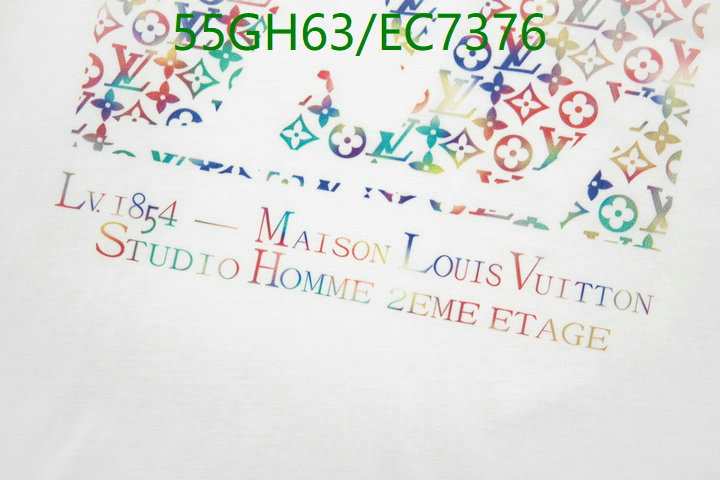 55GH63/EC7376
LV.1854 — MAISON LOUIS VUITTON
STUDIO HOMME 2EME ETAGE